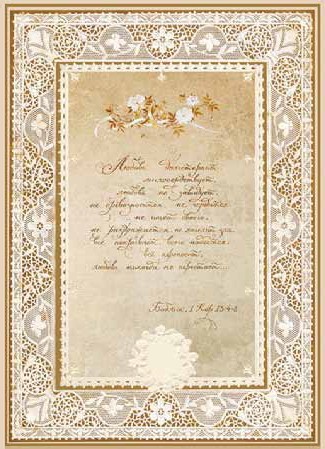 Любовь долготерпит,
милосердствует,
любовь не завидует,
не превозносится, не гордится
не ищет своего,
не раздражается, не мыслит зла,
все покрывает, всего надеется,
все переносит,
любовь никогда не перестает...
Библия, 1 Кор. 13:4-8